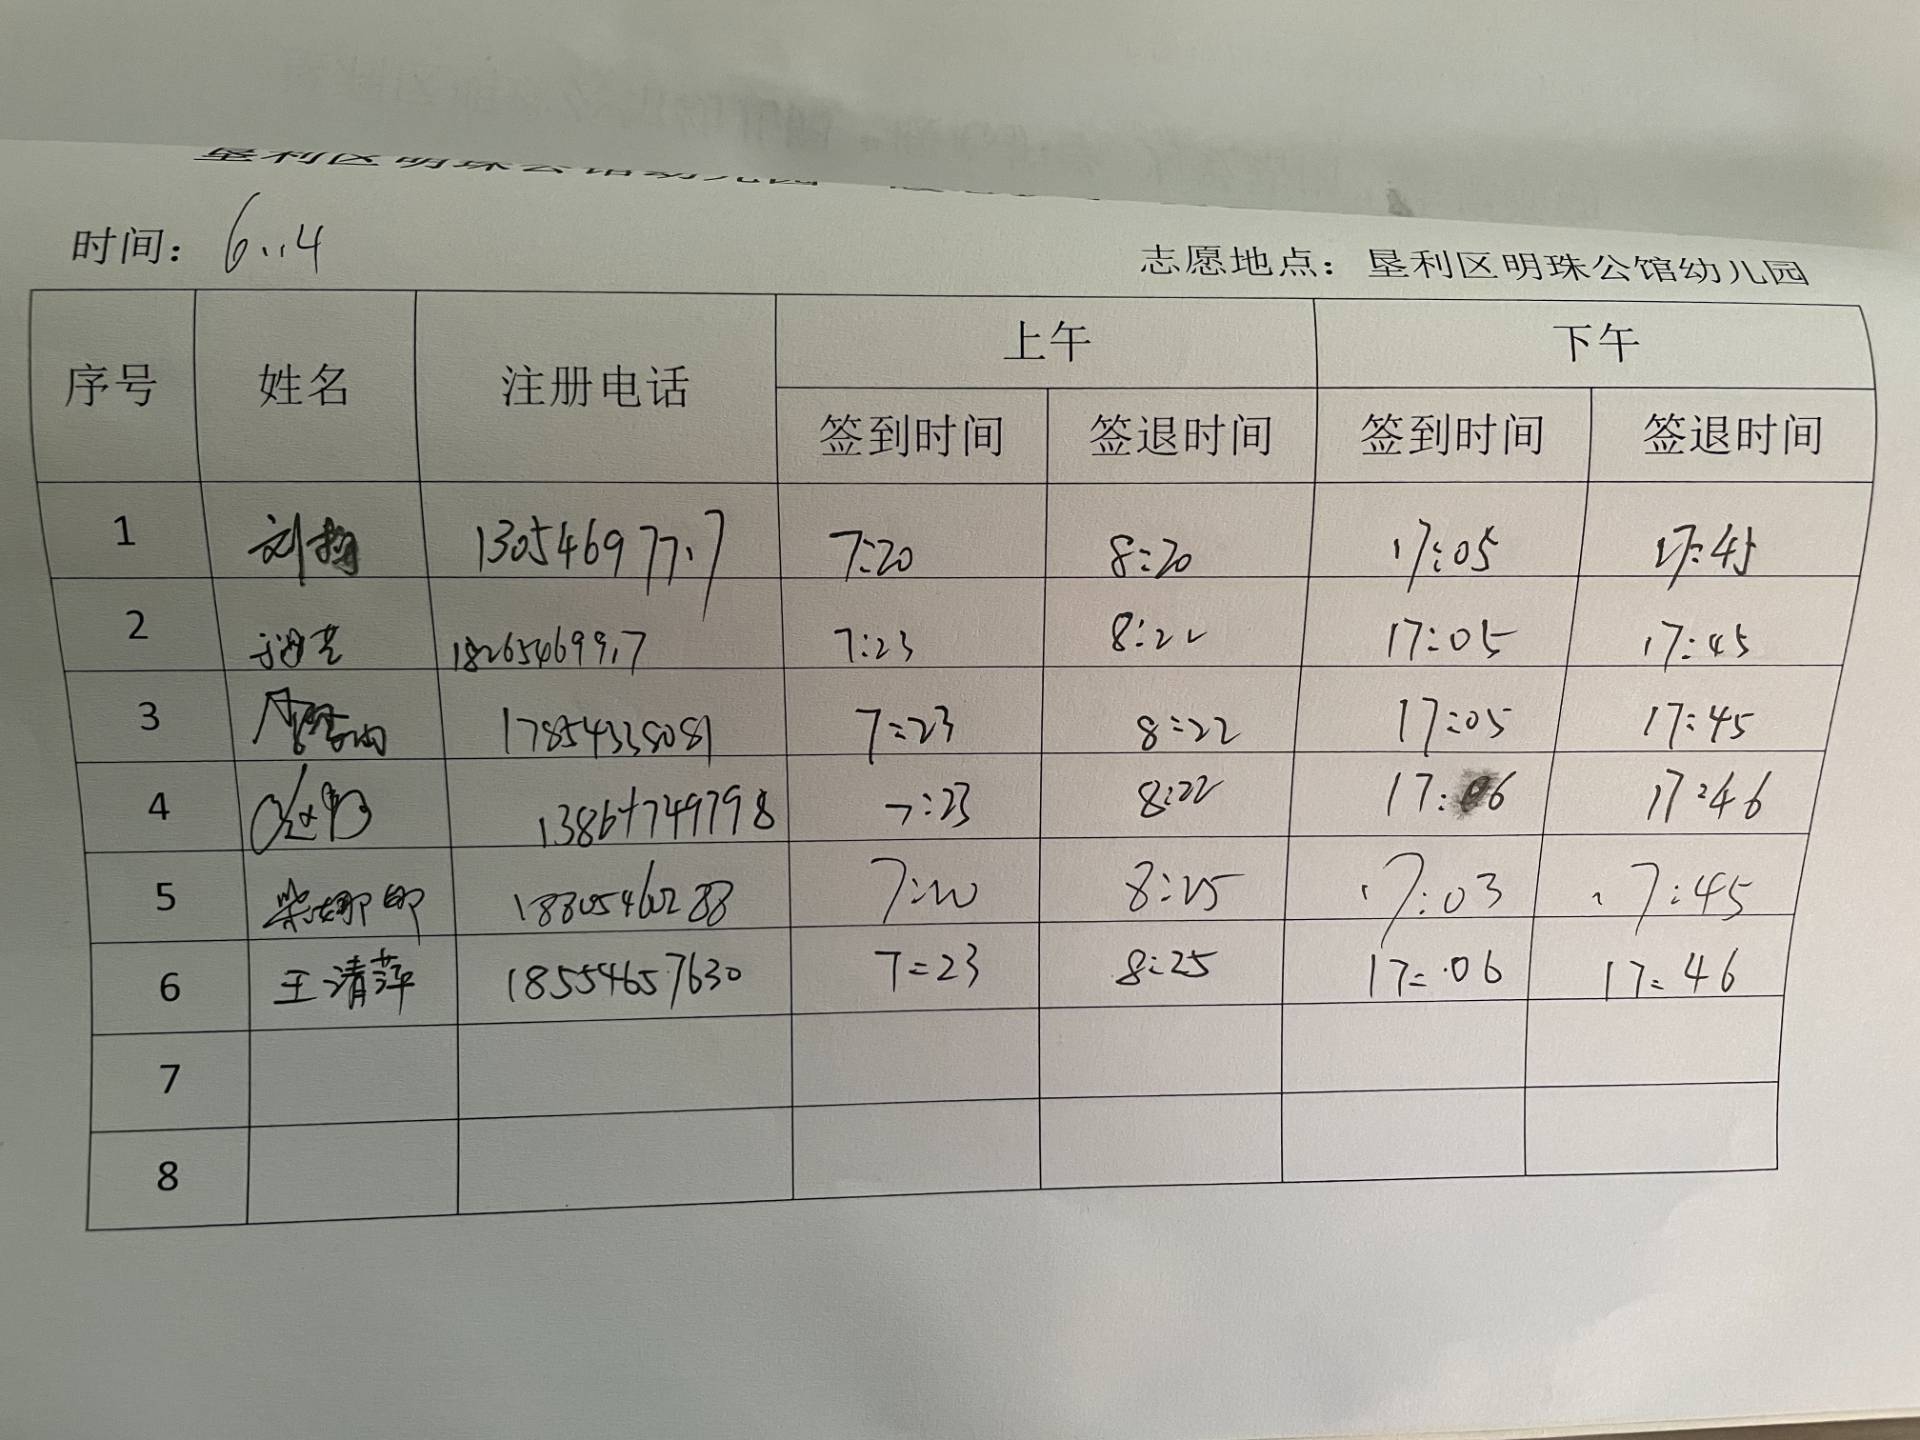 垦利区明珠公馆幼儿园
时间： 6..4 志愿地点： 垦利区明珠公馆幼儿园
序号 姓名 注册电话 上午 下午
签到时间 签退时间 签到时间 签退时间
1 7:20 8:20 17:05 17:45
2 7:23 8:22 17:05 17:45
3 17854338081 7:23 8:22 17:05 17:45
4 7:23 8:22 17:06 17:46
5 柴娜娜 18805460288 7:20 8:25 17:03 17:45
6 王清萍 18554657630 7:23 8:25 17:06 17:46
7
8